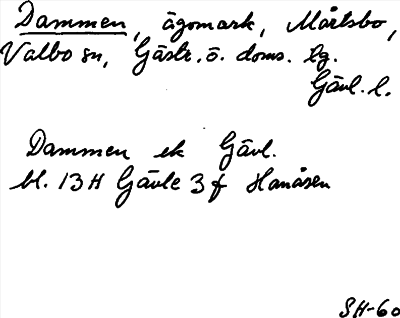 Dammen, ägomark, Mårtsbo,
Valbo sn, Gästr. ö. doms. lg.
Gävl. l.
Dammen ek Gävl.
bl. 13 H Gävle 3 f Hanåsen
SH-60